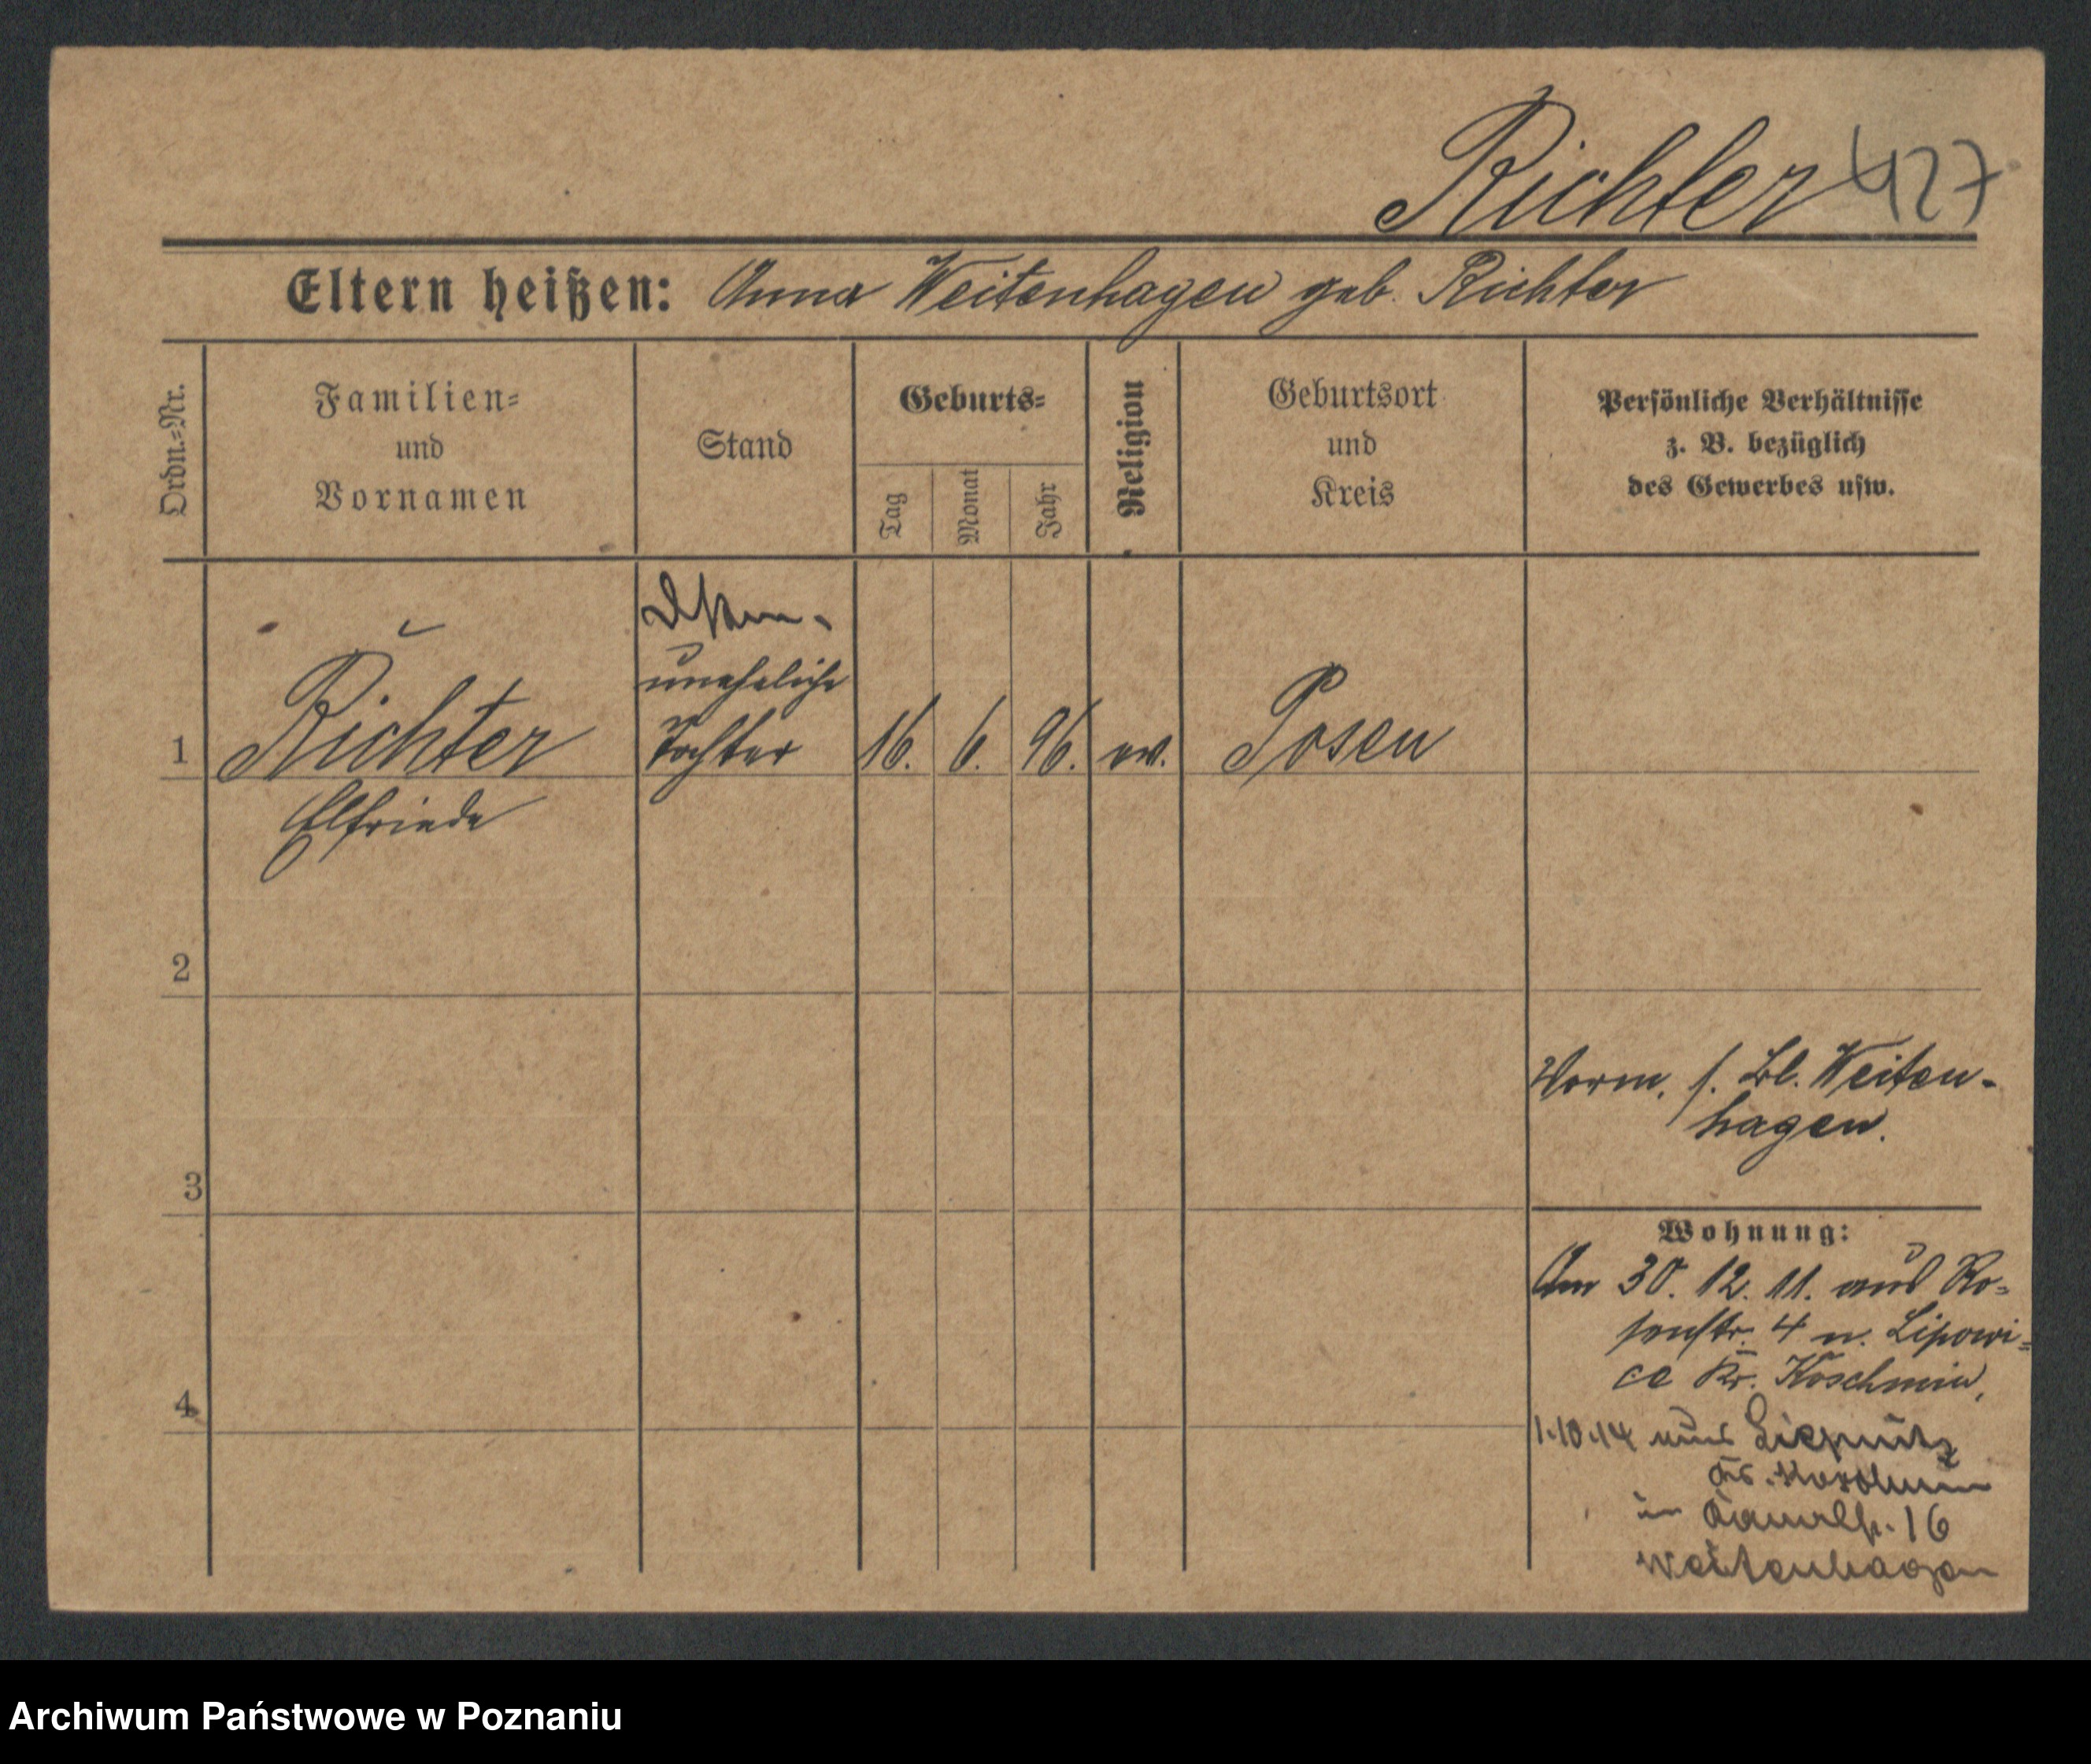 Richter 427
Eltern heißen: Anna Weitenhagen geb. Richter
Ordn.=Nr.
Familien=
und
Vornamen
Stand
Geburts=
Tag
Monat
Jahr
Religion
Geburtsort
und
Kreis
Persönliche Verhältnisse
z. B. bezüglich
des Gewerbes usw.
uneheliche
1 Richter Tochter 16. 6. 96. ev. Posen
Elfriede
2
Vorm. s. Bl. Weiten-
hagen.
3
Wohnung:
Am 30. 12. 11. aus Ro=
senstr. 4 n. Lipowi=
ce Kr. Koschmin,
4
1.10.14 aus
Kr. Koschmin
in 16
Weitenhagen
Archiwum Państwowe w Poznaniu